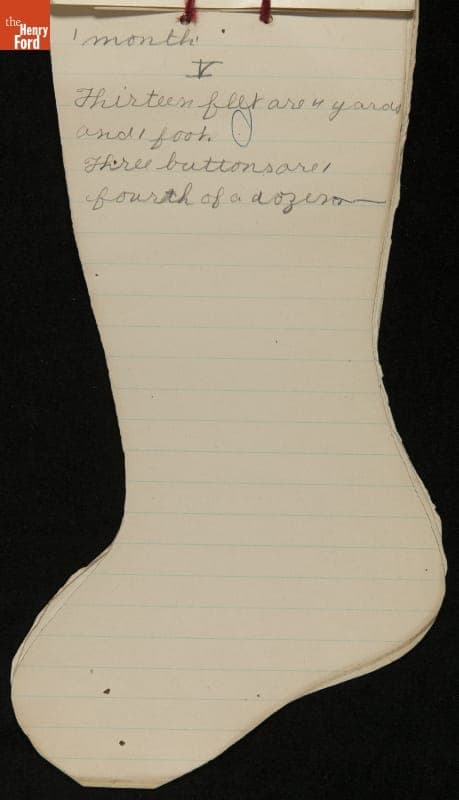 the
Henry
Ford
1 month.
V
Thirteen feet are 4 yards
and 1 foot.
Three buttons are 1
fourth of a dozen